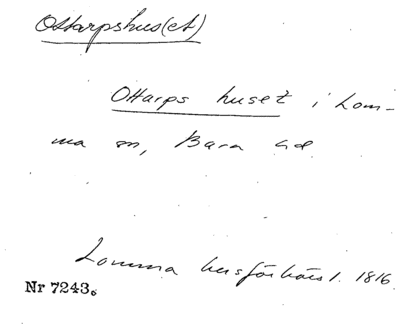 Ottarpshus(et)
Ottarps huset i Lom-
ma sn, Bara hd
Lomma husförhörsl. 1816
Nr 7243.